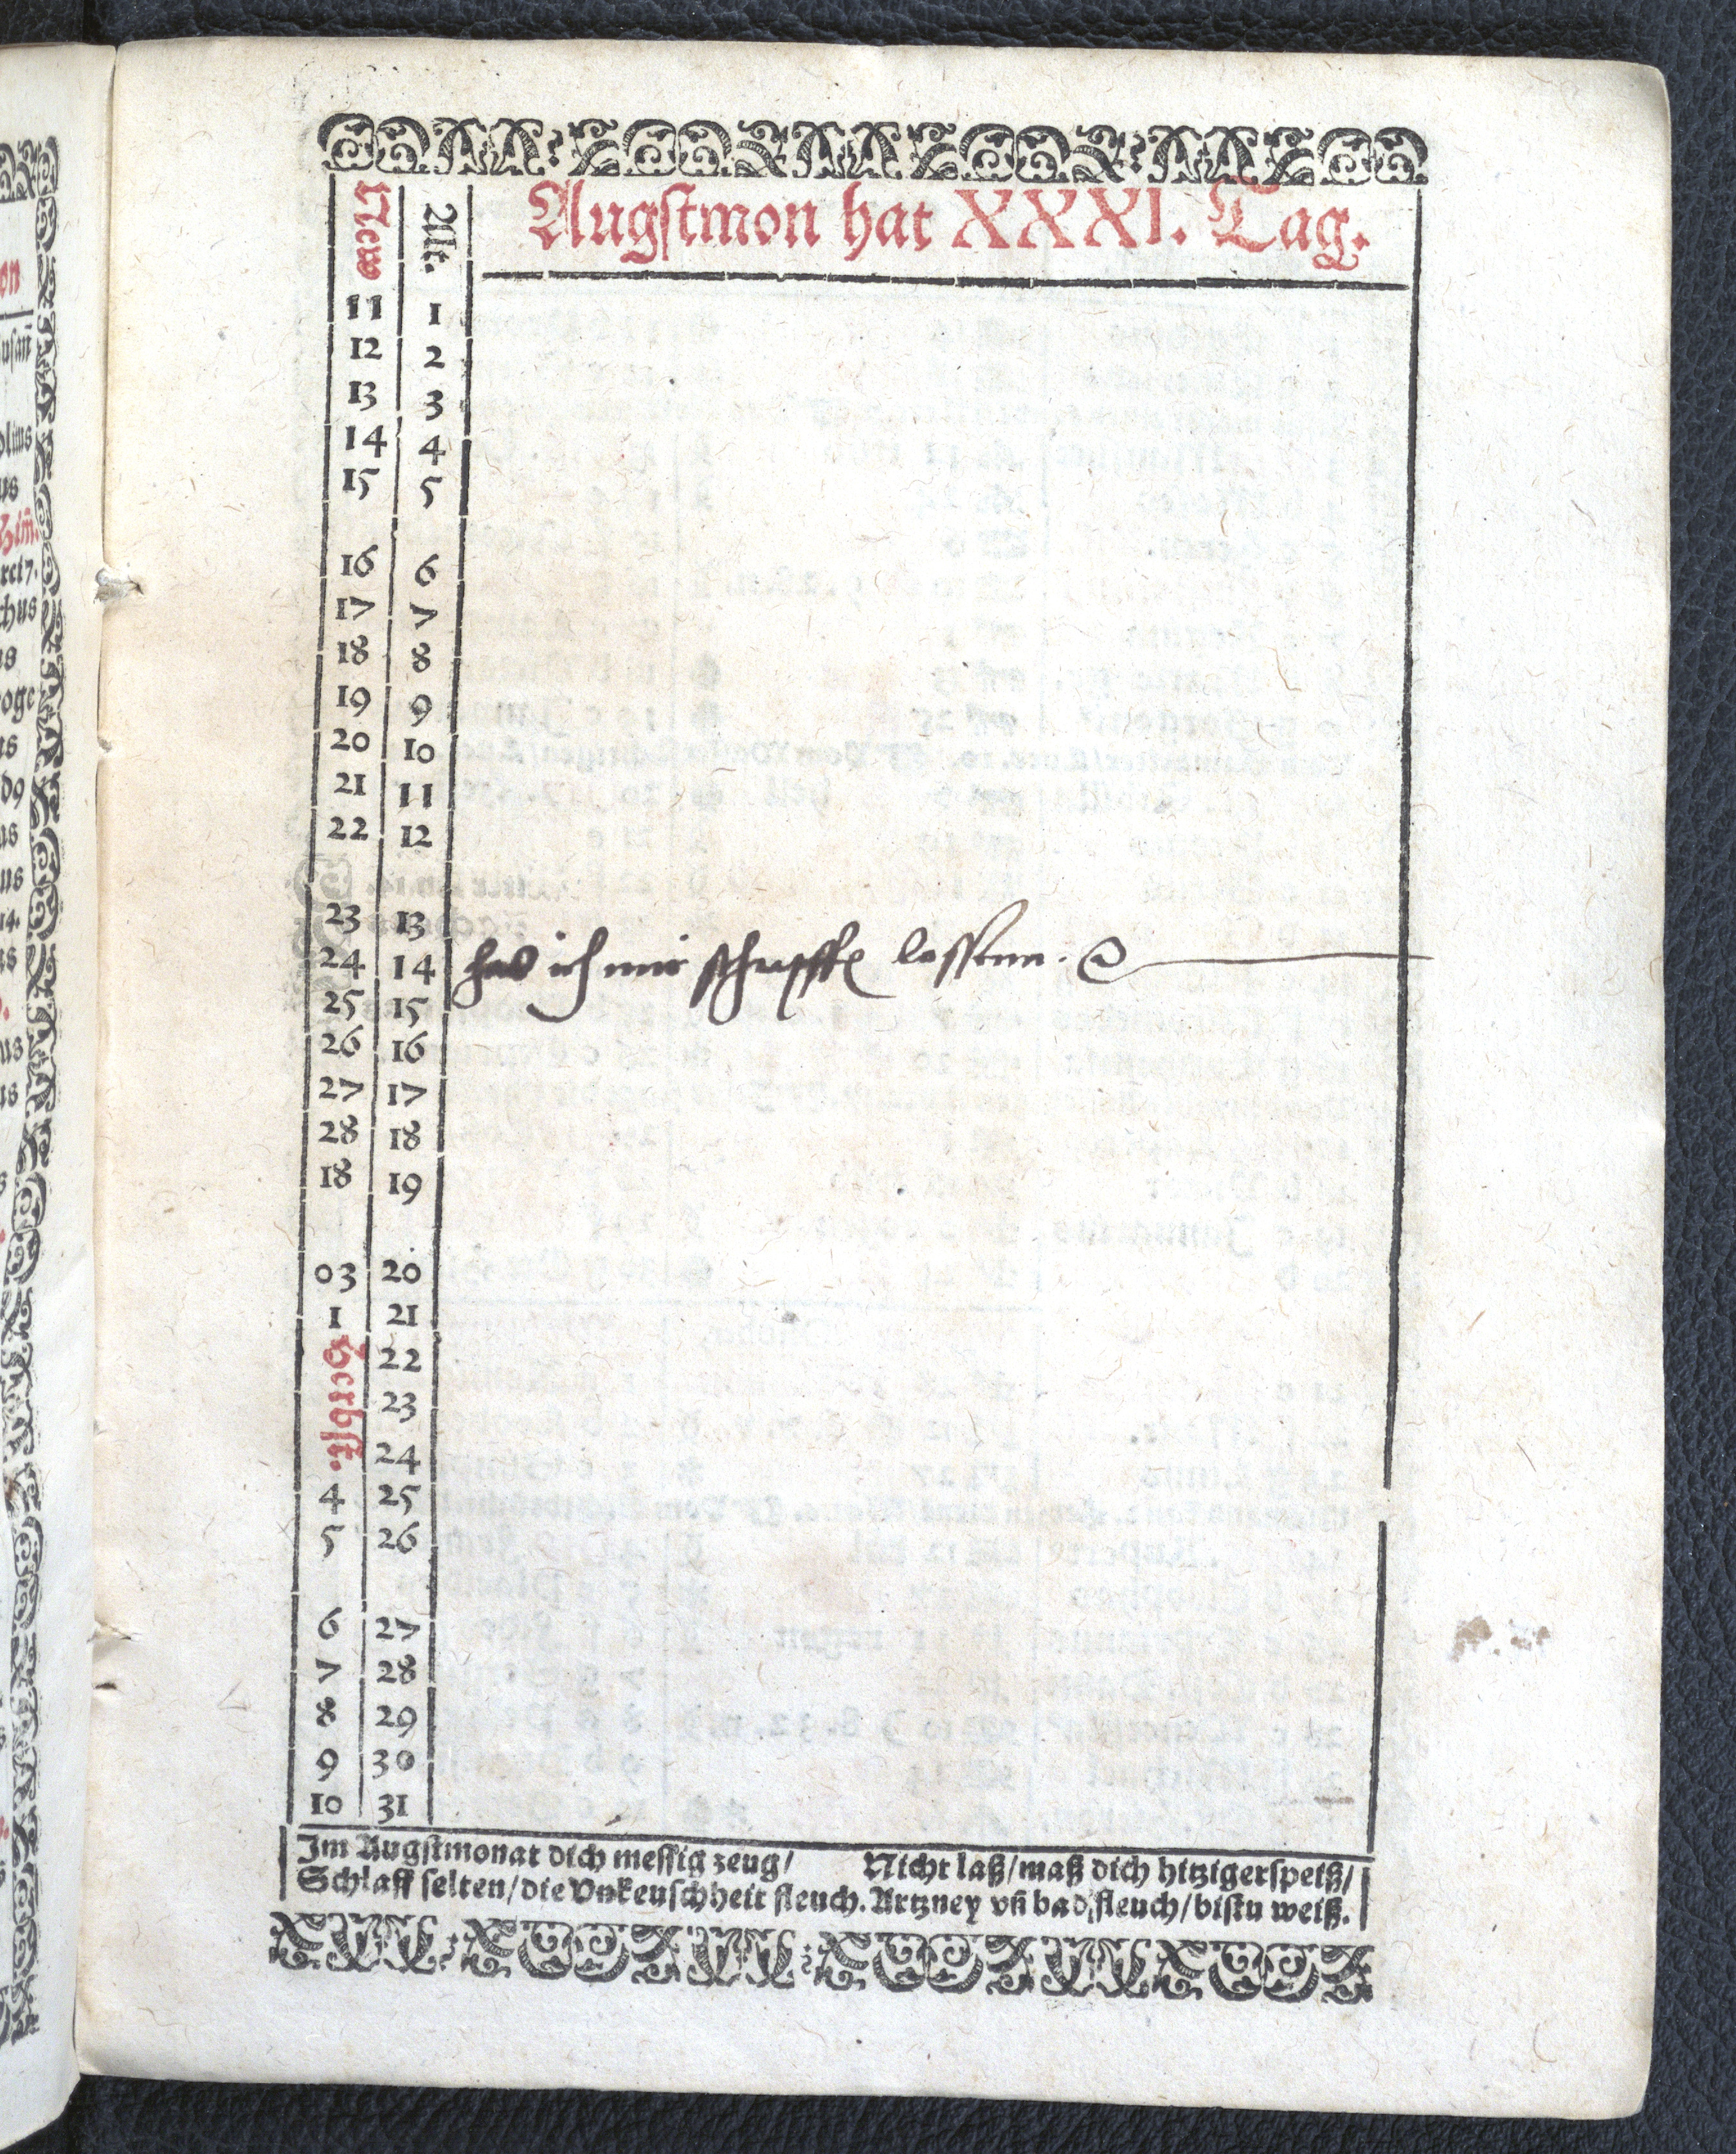 Augstmon hat XXXI. Tag.
New Alt.
11 1
12 2
13 3
14 4
15 5
16 6
17 7
18 8
19 9
20 10
21 11
22 12
23 13
24 14 hab ich mir schrepffen lassenn.
25 15
26 16
27 17
28 18
18 19
03 20
1 21
Herbst. 22
23
24
4 25
5 26
6 27
7 28
8 29
9 30
10 31
Im Augstmonat dich messig zeug/ Nicht laß/maß dich hitziger speiß/
Schlaff selten/die Vnkeuschheit fleuch. Artzney vñ bad fleuch/bistu weiß.